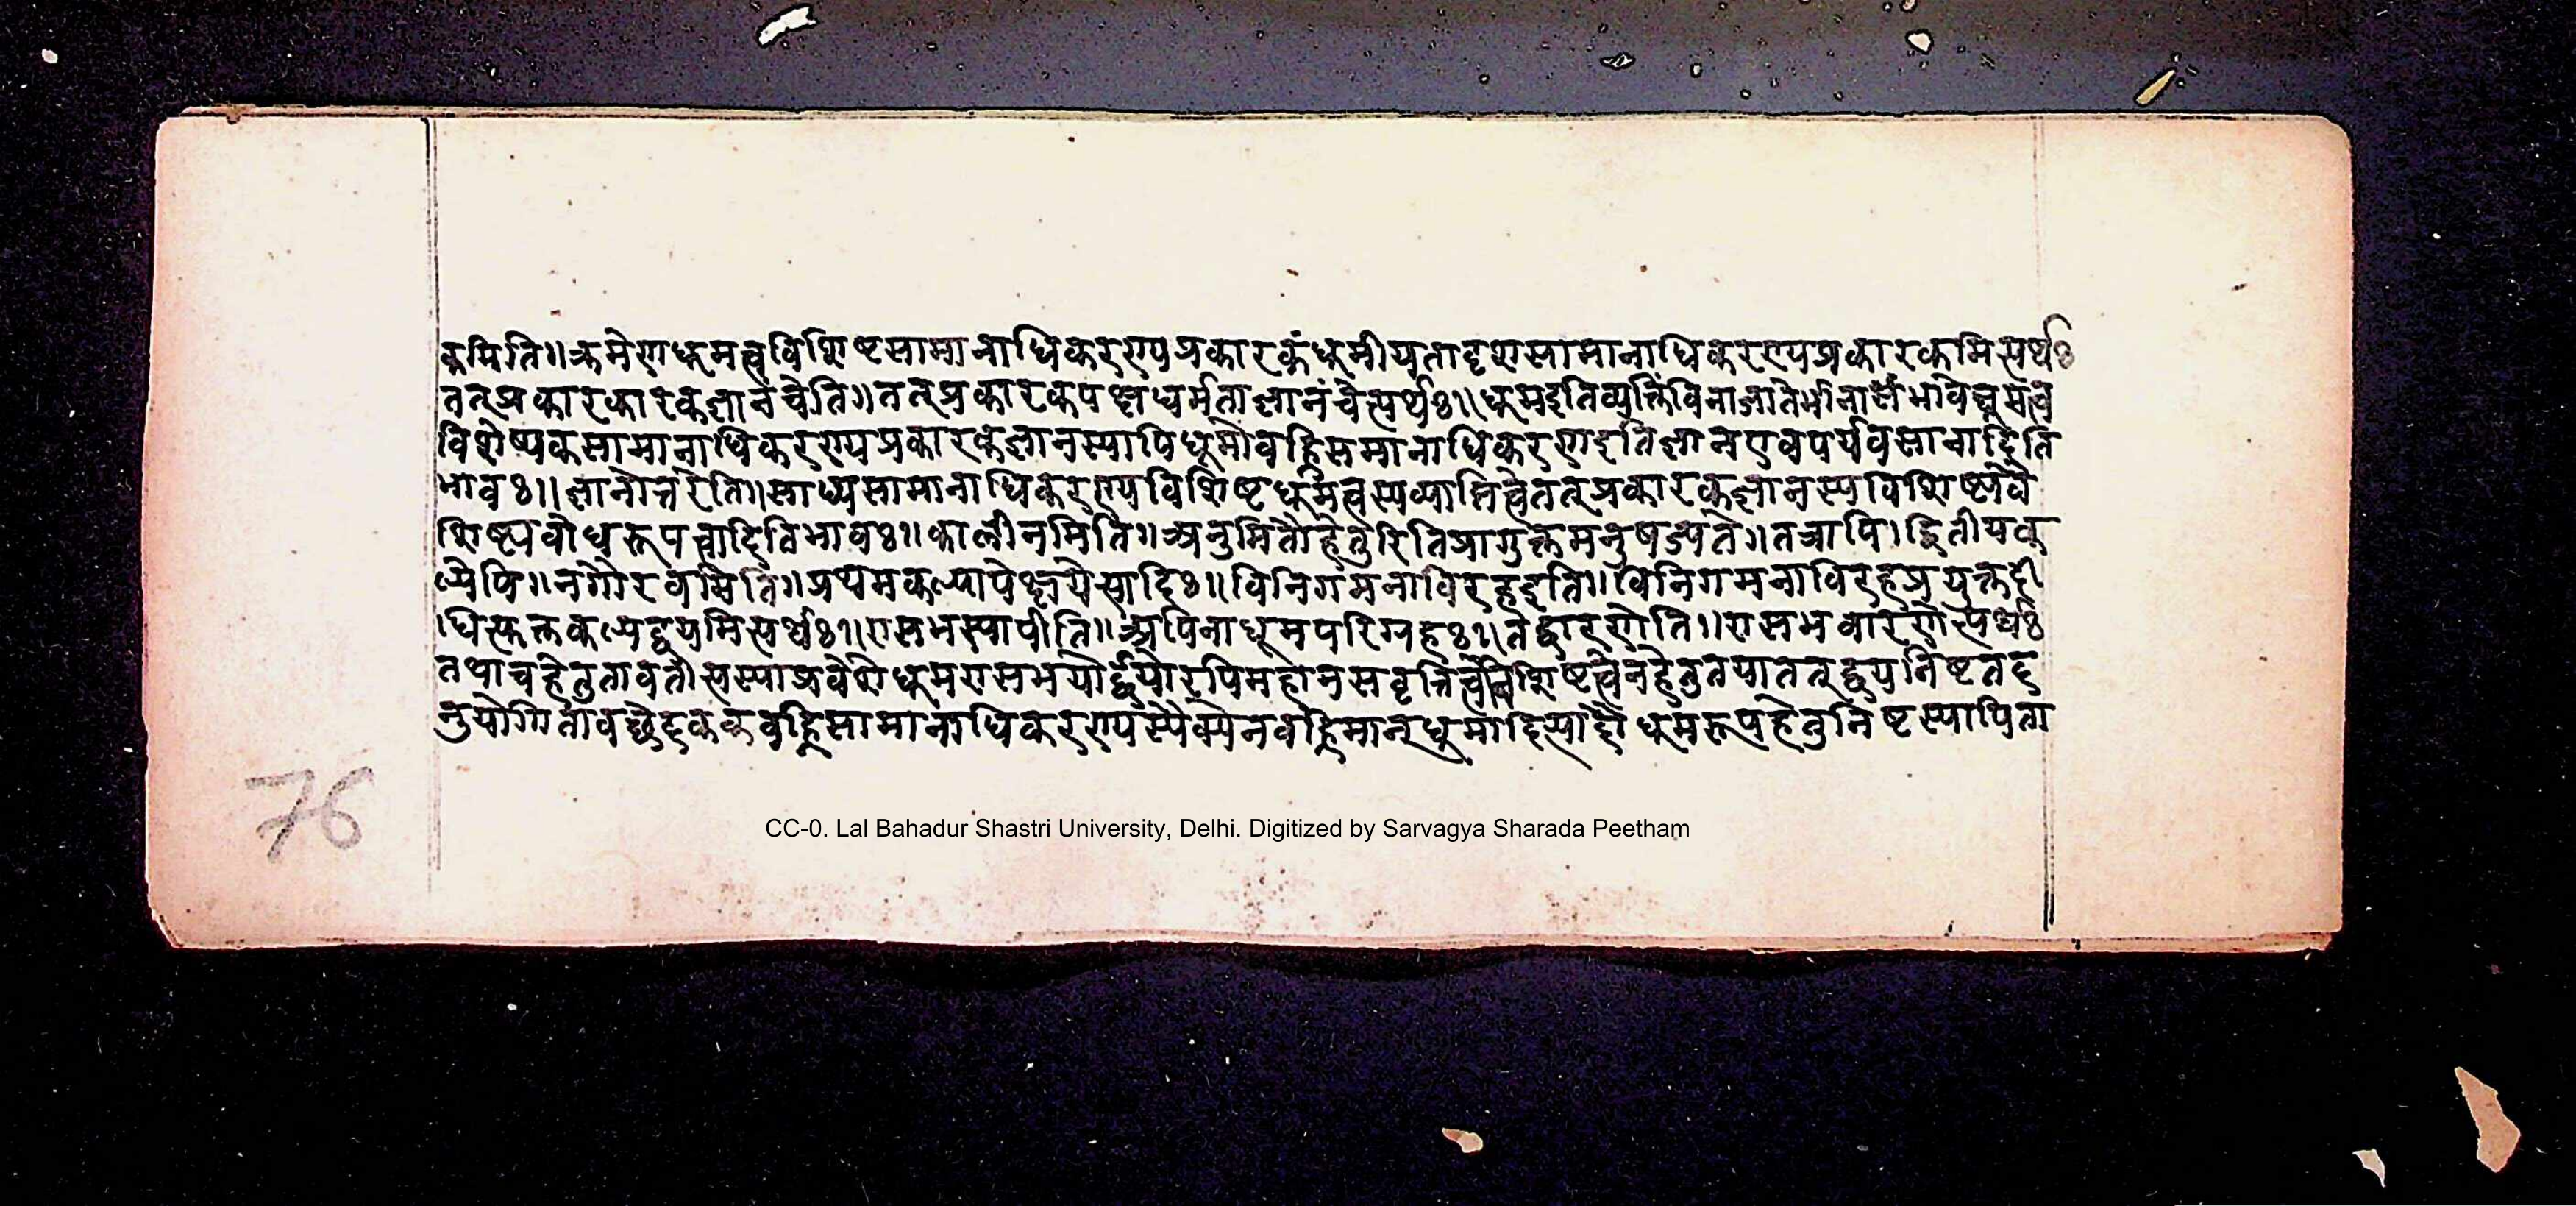 कमिति॥क्रमेणधूमत्वविशिष्टसामानाधिकरण्यप्रकारकंधूमीयतादृशसामानाधिकरण्यप्रकारकमित्यर्थः
तत्प्रकारकारकज्ञानंचेति॥तत्प्रकारकपक्षधर्मताज्ञानंचेत्यर्थः॥धूमइतिव्यक्तिंविना
विशेष्यकसामानाधिकरण्यप्रकारकज्ञानस्यापिधूमोवह्निसमानाधिकरणइतिज्ञानएवपर्यवसानादिति
भावः॥ज्ञानोत्तरेति॥साध्यसामानाधिकरण्यविशिष्टधूमत्वस्यव्याप्तित्वेतत्प्रकारकज्ञानस्यविशिष्टवै
शिष्ट्यबोधरूपत्वादितिभावः॥कालीनमिति॥अनुमितौहेतुरितिप्रागुक्तमनुषज्यते॥तत्रापि।द्वितीयक
ल्पेपि॥नगौरवमिति॥प्रथमकल्पापेक्षयेत्यादिः॥विनिगमनाविरहइति॥विनिगमनाविरहप्रयुक्तदी
धित्युक्तकल्पद्वयमित्यर्थः॥रासभस्यापीति॥अपिनाधूमपरिग्रहः॥तद्वारणेति॥रासभवारणेत्यर्थः
तथाचहेतुतावतीत्यस्याप्रवेशेधूमरासभयोर्द्वयोरपिमहानसवृत्तित्वविशिष्टत्वेनहेतुतयातत्द्वयनिष्टतद
नुयोगितावच्छेदककवह्निसामानाधिकरण्यस्यैक्येनवह्निमान्धूमादित्यादौधूमरूपहेतुनिष्टस्यापिता
76
CC-0. Lal Bahadur Shastri University, Delhi. Digitized by Sarvagya Sharada Peetham